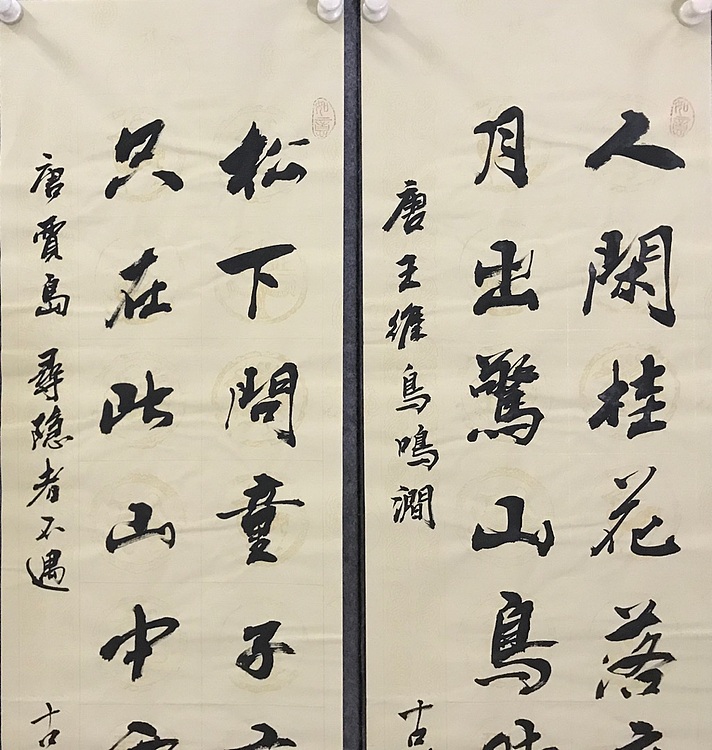 人閑桂花落
月出驚山鳥時
唐王維鳥鳴澗 古
松下問童子
只在此山中雲
唐賈島 尋隐者不遇 古